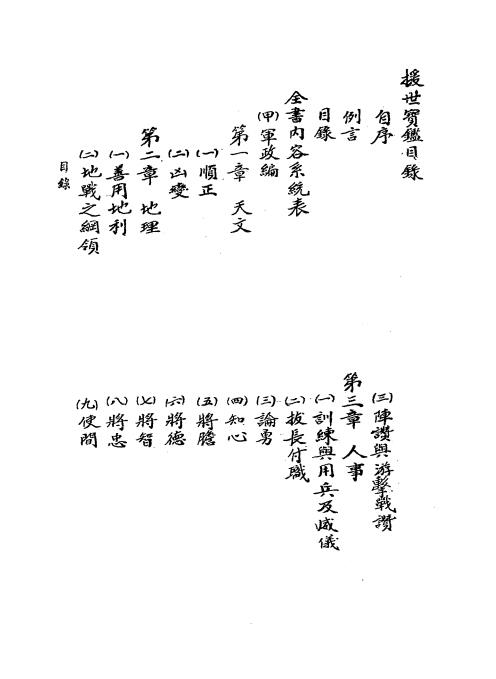 援世寶鑑目錄
自序
例言
目錄
全書內容系統表
(甲)軍政編
第一章 天文
(一)順正
(二)凶變
第二章 地理
(一)善用地利
(二)地戰之綱領
(三)陣讚與游擊戰讚
第三章 人事
(一)訓練與用兵及威儀
(二)拔長付職
(三)論勇
(四)知心
(五)將膽
(六)將德
(七)將智
(八)將忠
(九)使問
目錄